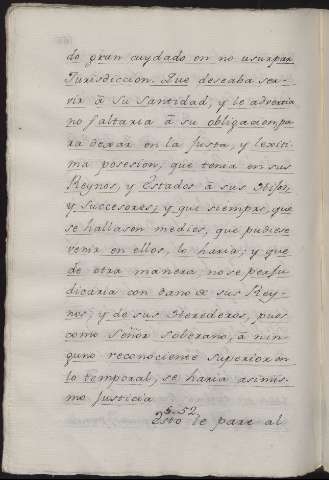 do gran cuydado en no usurpar
Jurisdiccion. Que deseaba ser-
vir à Su Santidad, y le advertia
no faltaria à su obligacion pa
ra dexar en la Justa, y lexiti
ma posesion, que tenia en sus
Reynos, y Estados à sus Hijos,
y Successores; y que siempre, que
se hallasen medios, que pudiese
venir en ellos, lo haria; y que
de otra manera no se perju
dicaria con daño de sus Rey-
nos; y de sus Herederos, pues
como Señor soberano, à nin
guno reconociente superior en
lo temporal, se haria asimis-
mo Justicia
§. 52.
Esto le pare al